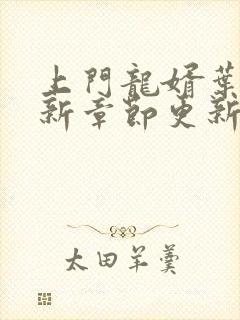 上門龍婿葉
新章節更新
太田羊羹